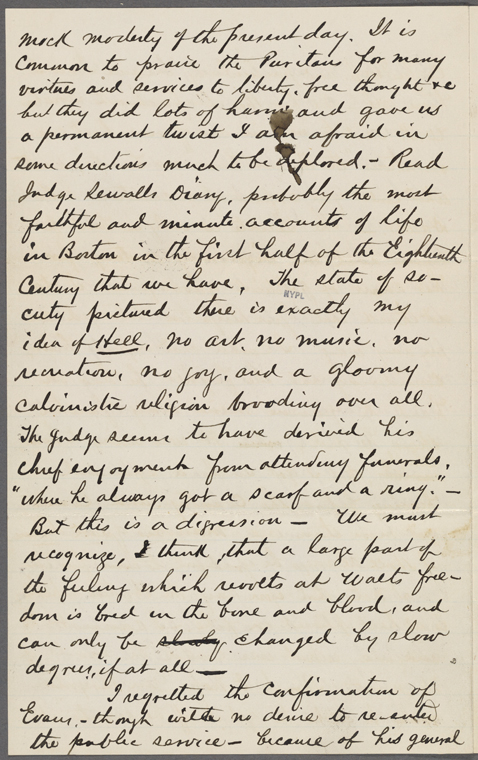 mock modesty of the present day. It is
common to praise the Puritans for many
virtues and services to liberty, free thought &c
but they did lots of harm and gave us
a permanent twist I am afraid in
some directions much to be deplored. - Read
Judge Sewalls Diary, probably the most
faithful and minute accounts of life
in Boston in the first half of the Eighteenth
Century that we have. The state of so-
NYPL
ciety pictured there is exactly my
idea of Hell, no art, no music, no
recreation, no joy, and a gloomy
calvinistic religion brooding over all.
The Judge seems to have derived his
chief enjoyment from attending funerals,
"where he always got a scarf and a ring." -
But this is a digression - We must
recognize, I think, that a large part of
the feeling which revolts at Walts free-
dom is bred in the bone and blood, and
can only be slowly changed by slow
degrees, if at all -
I regretted the confirmation of
Evans, - though with no desire to re-enter
the public service - because of his general